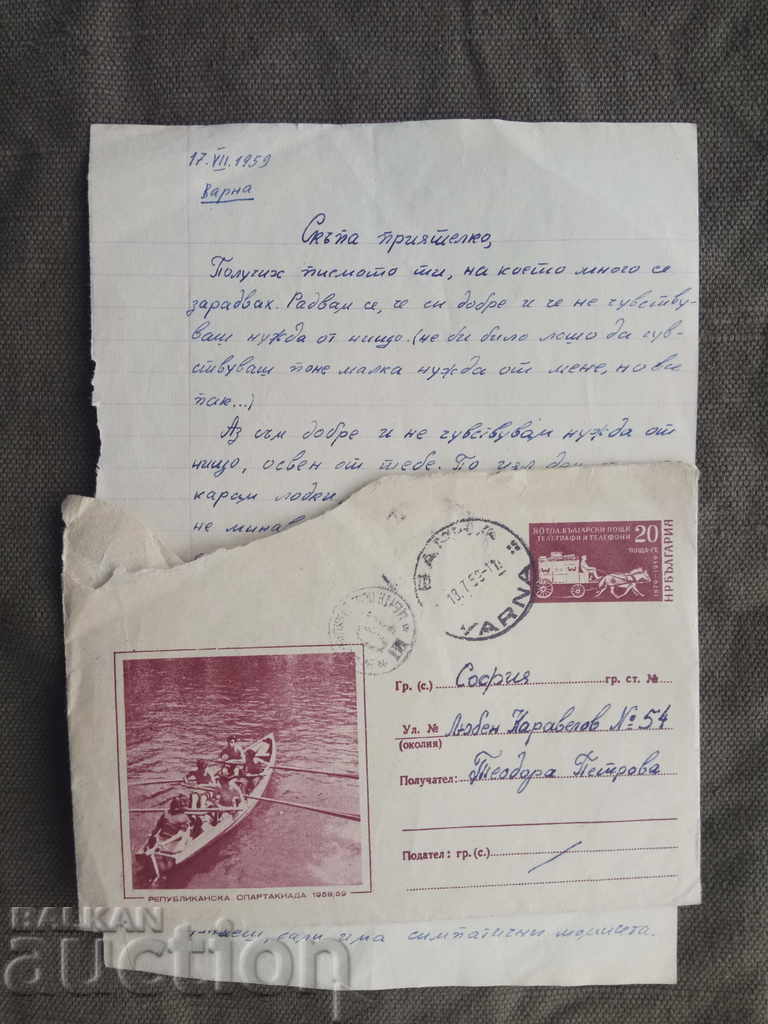 17.VII.1959
Варна
Скъпа приятелко,
Получих писмото ти, на което много се
зарадвах. Радвам се, че си добре и че не чувству-
ваш нужда от нищо. (не би било лошо да чув-
ствуваш поне малка нужда от мене, но все
пак...)
Аз съм добре и не чувствувам нужда от
нищо, освен от тебе. По цял ден
лодки,
не минав
80 ГОД. БЪЛГАРСКИ ПОЩИ
ТЕЛЕГРАФИ И ТЕЛЕФОНИ
20
ПОЩА-СТ.
НРБЪЛГАРИЯ
1879-1959
18.7.59-11
VARNA
Гр. (с.) София гр. ст. №
Ул. № Любен Каравелов № 54
(околия)
Получател: Теодора Петрова
Подател: гр. (с.)
РЕПУБЛИКАНСКА СПАРТАКИАДА 1958/59
дали има симпатични момичета.
BALKAN
auction